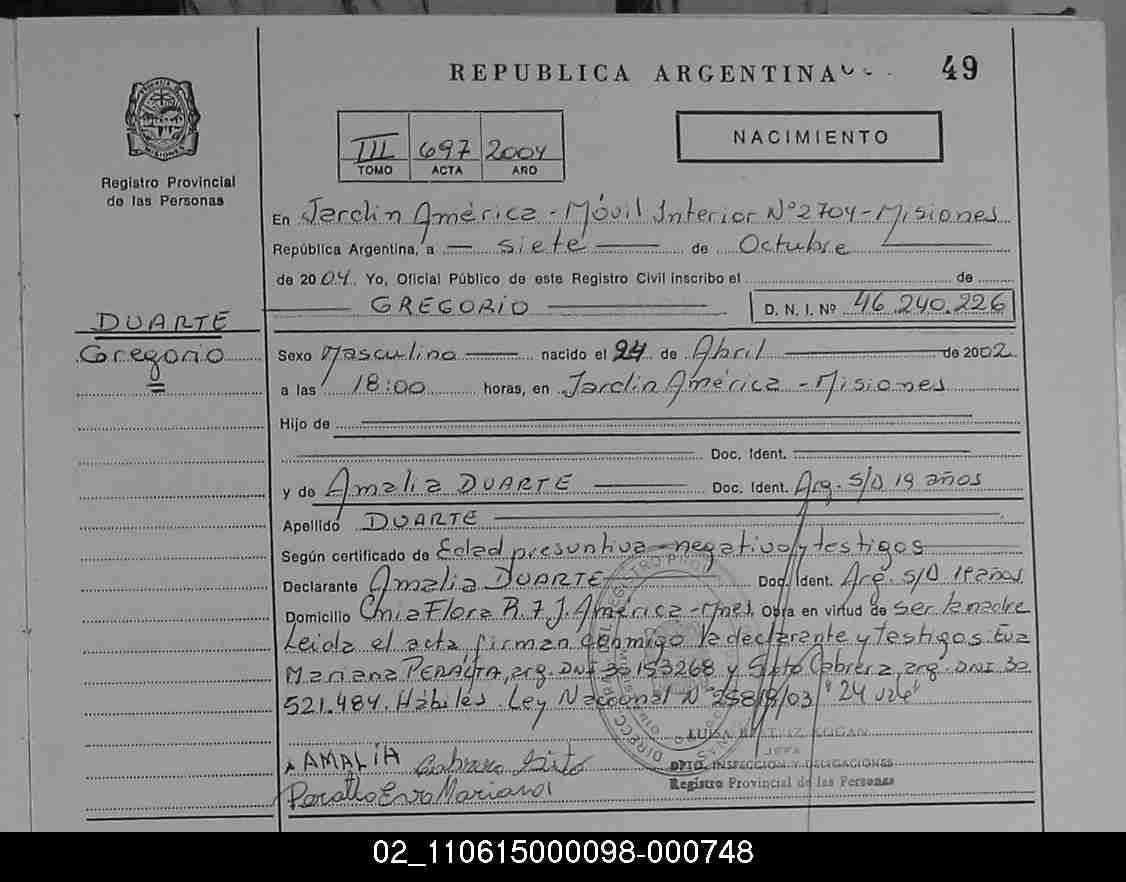 REPUBLICA ARGENTINA
49
MISIONES
Registro Provincial
de las Personas
III 697 2004
TOMO ACTA AÑO
NACIMIENTO
En Jardín América - Móvil Interior Nº 2704 - Misiones
República Argentina, a siete de Octubre
de 2004. Yo, Oficial Público de este Registro Civil inscribo el de
GREGORIO D. N. I. Nº 46.240.226
DUARTE
Gregorio
Sexo Masculino nacido el 24 de Abril de 2002
a las 18:00 horas, en Jardín América - Misiones
Hijo de
Doc. Ident.
y de Amalia DUARTE Doc. Ident. Arg. S/D 19 años
Apellido DUARTE
Según certificado de Edad presuntiva - negativo y testigos
Declarante Amalia DUARTE Doc. Ident. Arg. S/D 19 años
Domicilio Chia Flora R. 7 J. América - Mnes. Obra en virtud de ser la madre
Leida el acta, firman conmigo la declarante y testigos: Eva
Mariana PERALTA, arg. DNI 30153268 y Sixto Cabrera, arg. DNI 30
521.484. Hábiles. Ley Nacional Nº 25819/03 "24 vale"
JEFA
AMALIA Cabrera Sixto
DPTO. INSPECCION Y DELEGACIONES
Registro Provincial de las Personas
Peralta Eva Mariana
02_110615000098-000748